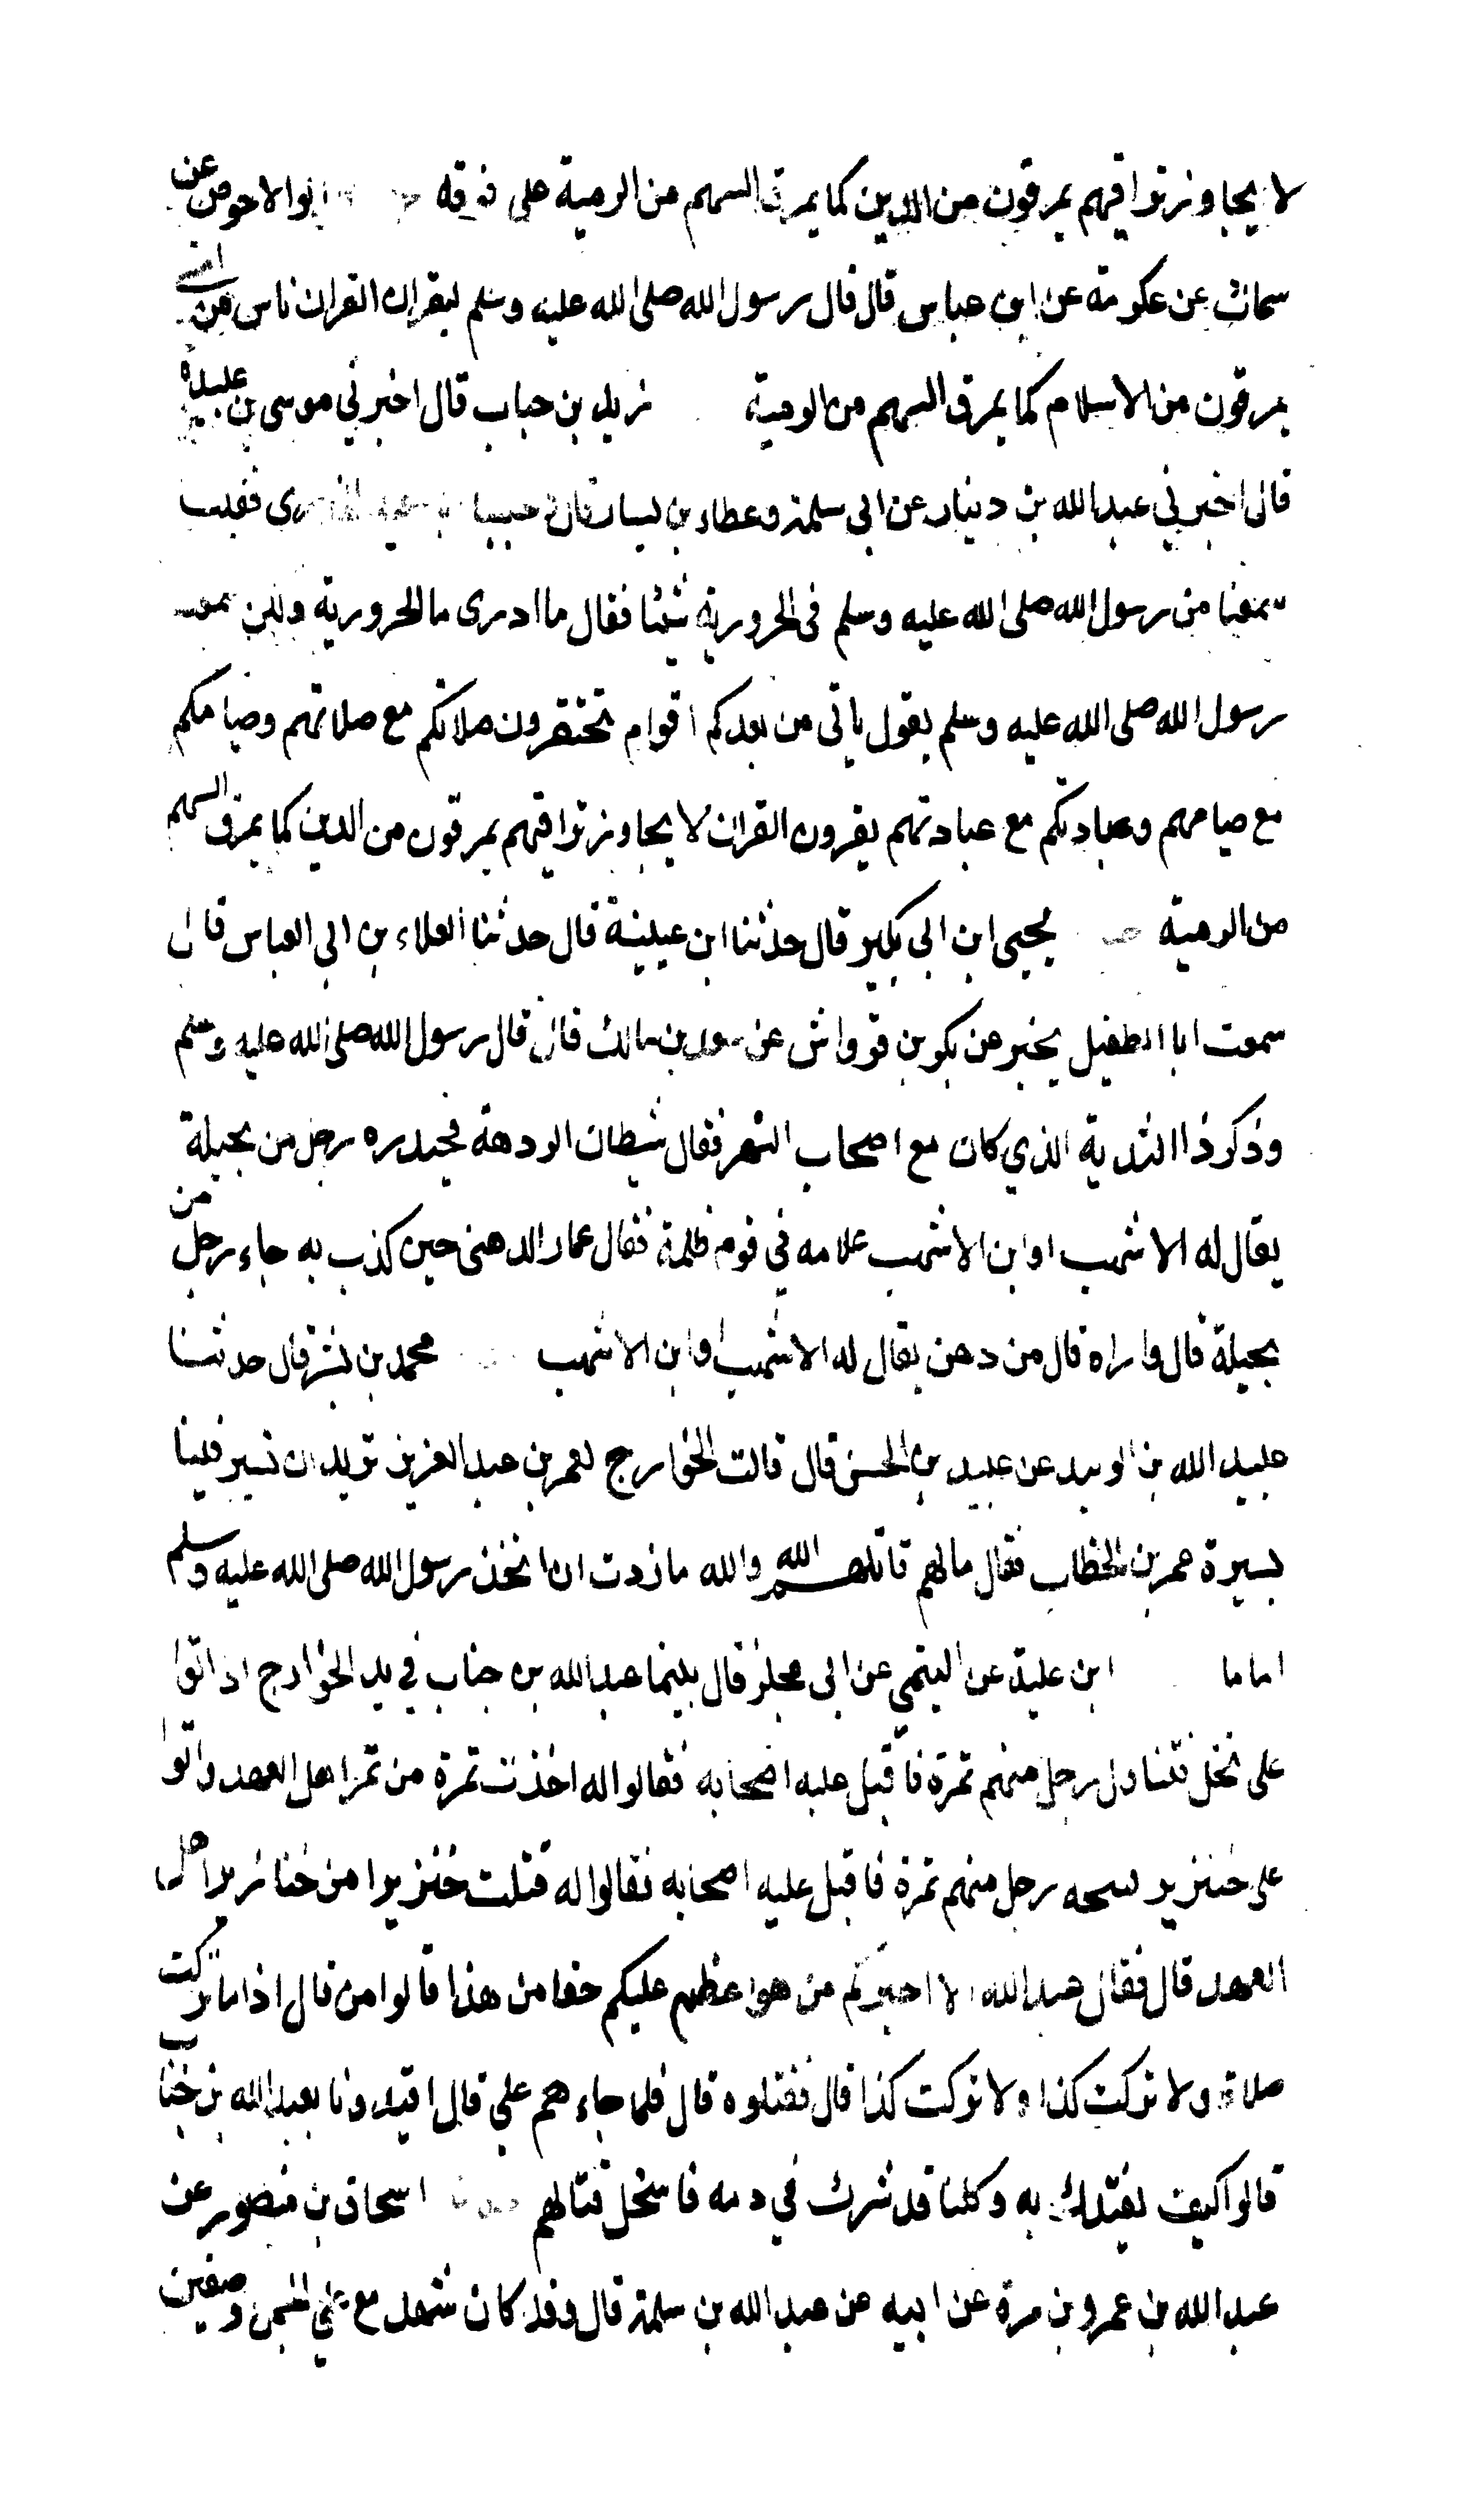 لا يجاوز تراقيهم يمرقون من الدين كما يمرق السهم من الرمية على فوقه ابوالاحوص عن
سماك عن عكرمة عن ابن عباس قال قال رسول الله صلى الله عليه وسلم ليقران القران ناس من امتي
يمرقون من الاسلام كما يمرق السهم من الرمية زيد بن حباب قال اخبرني موسى بن عبيدة
قال اخبرني عبد الله بن دينار عن ابى سلمة وعطاء بن يسار قال فقلت
سمعنا من رسول الله صلى الله عليه وسلم فى الحرورية شيئا فقال ما ادرى ما الحرورية ولكن سمعت
رسول الله صلى الله عليه وسلم يقول ياتى من بعدكم اقوام تحتقرون صلاتكم مع صلاتهم وصيامكم
مع صيامهم وعبادتكم مع عبادتهم يقرون القران لا يجاوز تراقيهم يمرقون من الدين كما يمرق السهم
من الرمية يحيى ابن ابى بكير قال حدثنا ابن عيينة قال حدثنا العلاء بن ابى العباس قال
سمعت ابا الطفيل يخبر عن بكر بن قرواش عن سعد بن مالك قال قال رسول الله صلى الله عليه وسلم
وذكر ذا الثدية الذي كان مع اصحاب النهر فقال شيطان الردهة يحيدره رجل من بجيلة
يقال له الاشهب او ابن الاشهب علامه في قوم ظلمة فقال عمار الدهنى حين كذب به جاء رجل من
بجيلة قال واراه قال من دهن يقال له الاشهب او ابن الاشهب محمد بن بشر قال حدثنا
عبيد الله بن الوليد عن عبيد بن الحسن قال قالت الخوارج لعمر بن عبد العزيز تريد ان تسير فينا
بسيرة عمر بن الخطاب فقال ما لهم قاتلهم الله والله ما زدت ان اتخذ رسول الله صلى الله عليه وسلم
اماما ابن علية عن التيمي عن ابى مجلز قال بينما عبد الله بن خباب في يد الخوارج اذ اتوا
على نخل فتناول رجل منهم تمرة فاقبل عليه اصحابه فقالوا له اخذت تمرة من تمر اهل العهد واتوا
على خنزير نفحه رجل منهم تمرة فاقبل عليه اصحابه فقالوا له قتلت خنزيرا من خنازير اهل
العهد قال فقال عبد الله الا اخبركم من هو اعظم عليكم حقا من هذا قالوا من قال انا ما تركت
صلاة ولا تركت كذا ولا تركت كذا قال فقتلوه قال فلما جاءهم علي قال اقيدونا بعبد الله بن خباب
قالوا كيف نقيدك به وكلنا قد شرك في دمه فاستحل قتالهم اسحاق بن منصور عن
عبد الله بن عمرو بن مرة عن ابيه عن عبد الله بن سلمة قال وقد كان شهد مع علي الجمل وصفين